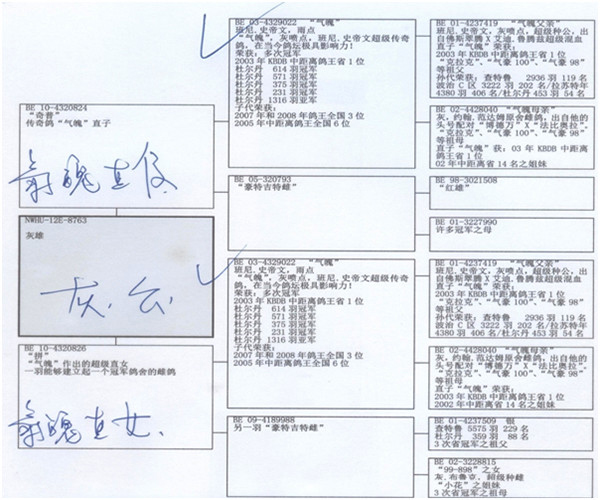 BE 10-4320824
“奇普”
传奇鸽“气魄”直子
气魄直仔
NWHU-12E-8763
灰雄
灰.公.
BE 10-4320826
“拼”
“气魄”作出的超级直女
一羽能够建立起一个冠军鸽舍的雌鸽
气魄直女.
BE 03-4329022 “气魄”
班尼.史帝文，雨点
“气魄”，灰喷点，班尼.史帝文超级传奇鸽，在当今鸽坛极具影响力！
荣获：多次冠军
2003 年 KBDB 中距离鸽王省 1 位
杜尔丹 614 羽冠军
杜尔丹 571 羽冠军
杜尔丹 375 羽冠军
杜尔丹 231 羽冠军
杜尔丹 1316 羽亚军
子代荣获：
2007 年和 2008 年鸽王全国 3 位
2005 年中距离鸽王全国 6 位
BE 05-320793
“豪特吉特雌”
BE 03-4329022 “气魄”
班尼.史帝文，雨点
“气魄”，灰喷点，班尼.史帝文超级传奇鸽，在当今鸽坛极具影响力！
荣获：多次冠军
2003 年 KBDB 中距离鸽王省 1 位
杜尔丹 614 羽冠军
杜尔丹 571 羽冠军
杜尔丹 375 羽冠军
杜尔丹 231 羽冠军
杜尔丹 1316 羽亚军
子代荣获：
2007 年和 2008 年鸽王全国 3 位
2005 年中距离鸽王全国 6 位
BE 09-4189988
另一羽“豪特吉特雌”
BE 01-4237419 “气魄父亲”
班尼.史帝文，灰喷点，超级种公，出
自佛斯翠腾 X 艾迪.鲁腾兹超级混血
直子“气魄”荣获：
2003 年 KBDB 中距离鸽王省 1 位
“克拉克”、“气豪 100”、“气豪 98”
等祖父
孙代荣获：查特鲁 2936 羽 119 名
波治 C 区 3222 羽 202 名/拉苏特年
4380 羽 406 名/杜尔丹 453 羽 54 名
BE 02-4428040 “气魄母亲”
灰，约翰.范达姆原舍雌鸽，出自他的
头号配对“博德万”X“法比奥拉”，
“克拉克”、“气豪 100”、“气豪 98”
等祖母
直子“气魄”获：03 年 KBDB 中距
离鸽王省 1 位
02 年中距离省 14 名之姐妹
BE 98-3021508
“红雄”
BE 01-3227990
许多冠军之母
BE 01-4237419 “气魄父亲”
班尼.史帝文，灰喷点，超级种公，出
自佛斯翠腾 X 艾迪.鲁腾兹超级混血
直子“气魄”荣获：
2003 年 KBDB 中距离鸽王省 1 位
“克拉克”、“气豪 100”、“气豪 98”
等祖父
孙代荣获：查特鲁 2936 羽 119 名
波治 C 区 3222 羽 202 名/拉苏特年
4380 羽 406 名/杜尔丹 453 羽 54 名
BE 02-4428040 “气魄母亲”
灰，约翰.范达姆原舍雌鸽，出自他的
头号配对“博德万”X“法比奥拉”，
“克拉克”、“气豪 100”、“气豪 98”
等祖母
直子“气魄”荣获：
2003 年 KBDB 中距离鸽王省 1 位
2002 年中距离省 14 名之姐妹
BE 01-4237509 银
查特鲁 5575 羽 229 名
杜尔丹 359 羽 88 名
3 次省冠军之祖父
BE 02-3228815
“99-898”之女
灰.布鲁克，超级种雌
“小花”之姐妹
3 次省冠军之祖母